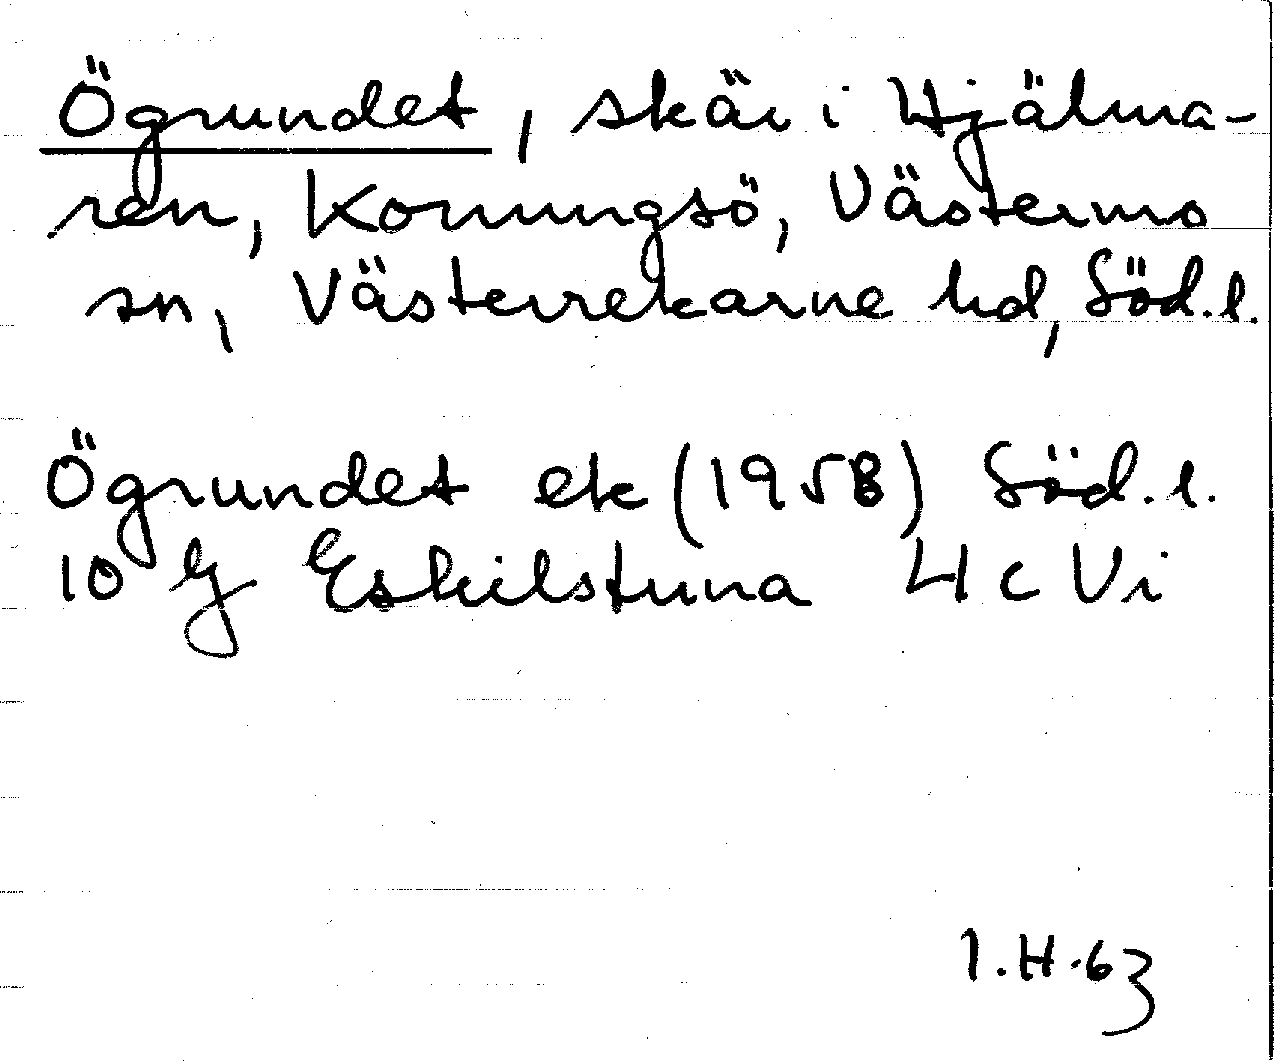 Ögrundet, skär i Hjälma-
ren, Konungsö, Västermo
sn, Västerrekarne hd, Söd.l.
Ögrundet ek (1958) Söd.l.
10 G Eskilstuna 4c Vi
I.H.63